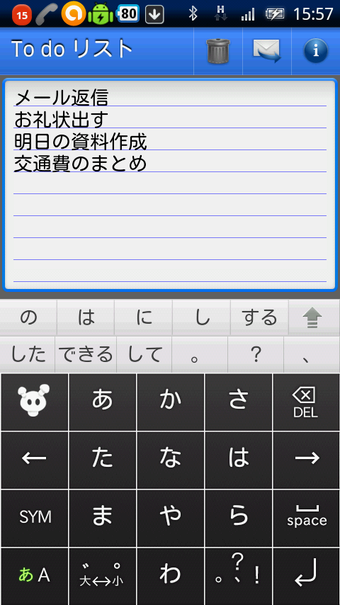 15 80 H 15:57
To do リスト
メール返信
お礼状出す
明日の資料作成
交通費のまとめ
の は に し する
した できる して 。 ? 、
あ か さ DEL
← た な は →
SYM ま や ら space
あA ゛゜大↔小 わ 。、?!